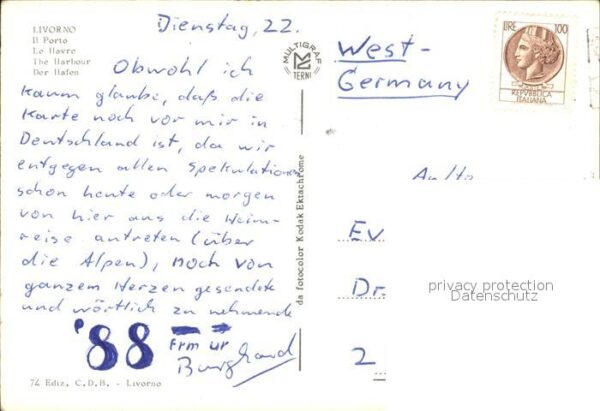 LIVORNO
Il Porto
Le Havre
The Harbour
Der Hafen
Dienstag, 22.
Obwohl ich
kaum glaube, daß die
Karte noch vor mir in
Deutschland ist, da wir
entgegen allen Spekulationen
schon heute oder morgen
von hier aus die Heim-
reise antreten (über
die Alpen), noch von
ganzem Herzen gesendete
und wörtlich zu nehmende
'88
Frm ur
Burghard
74 Ediz. C.D.B. - Livorno
MULTIGRAF
TERNI
da fotocolor Kodak Ektachrome
West-
Germany
LIRE 100
REPVBBLICA
ITALIANA
Ev
Dr.
2
privacy protection
Datenschutz